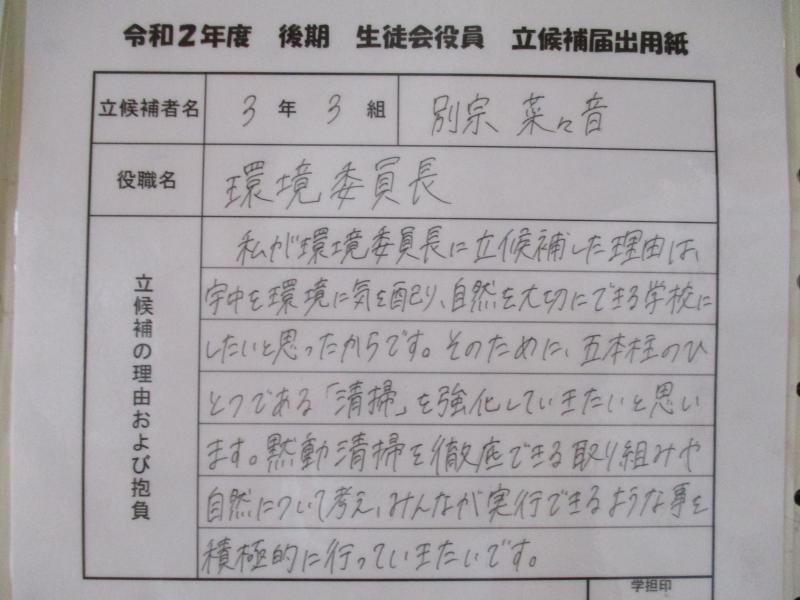 令和2年度 後期 生徒会役員 立候補届出用紙
立候補者名 3 年 3 組 別宗 菜々音
役職名 環境委員長
立候補の理由および抱負
私が環境委員長に立候補した理由は、
宇中を環境に気を配り、自然を大切にできる学校に
したいと思ったからです。そのために、五本柱のひ
とつである「清掃」を強化していきたいと思い
ます。黙動清掃を徹底できる取り組みや
自然について考え、みんなが実行できるような事を
積極的に行っていきたいです。
学担印